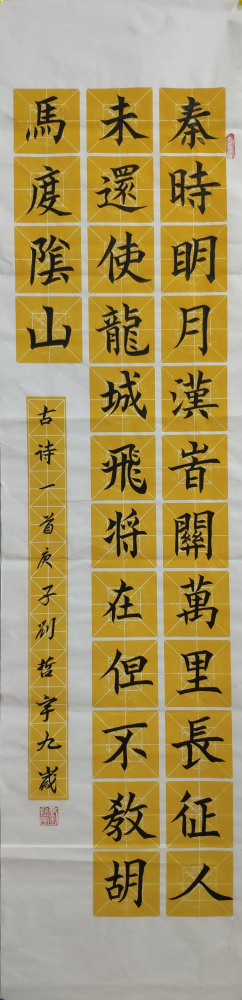 秦時明月漢旹關萬里長征人
未還使龍城飛将在但不教胡
馬度陰山
古诗一首庚子刘哲宇九歲